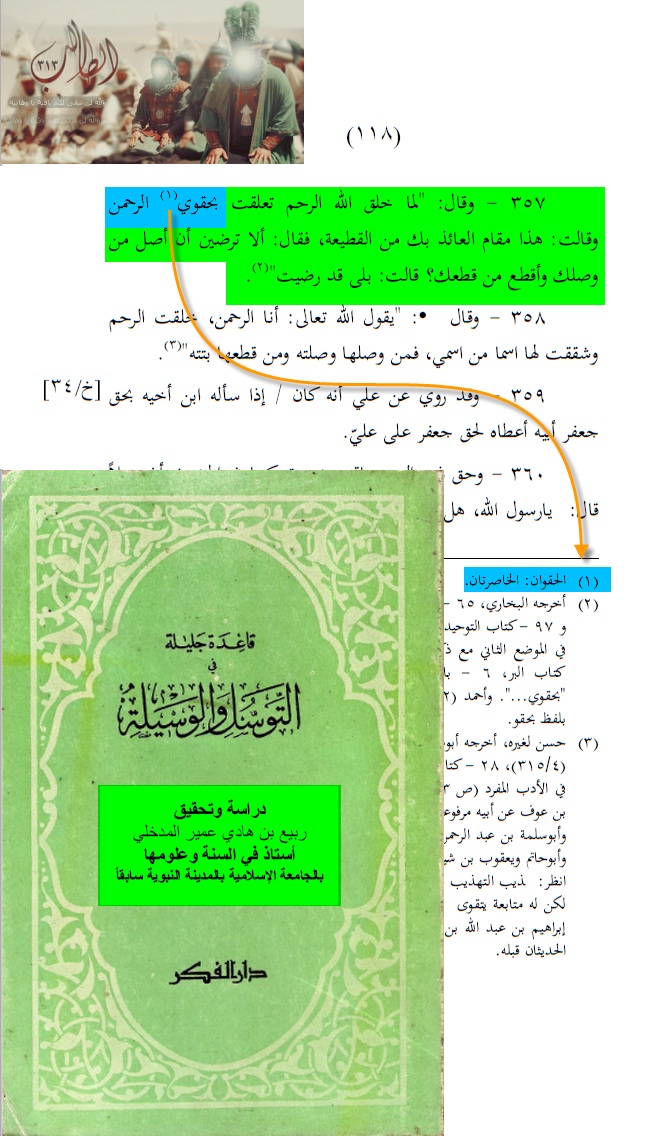 الطالب ٣١٣
(١١٨)
٣٥٧ – وقال: "لما خلق الله الرحم تعلقت بحقوي(١) الرحمن
وقالت: هذا مقام العائذ بك من القطيعة، فقال: ألا ترضين أن أصل من
وصلك وأقطع من قطعك؟ قالت: بلى قد رضيت"(٢).
٣٥٨ – وقال •: "يقول الله تعالى: أنا الرحمن، خلقت الرحم
وشققت لها اسما من اسمي، فمن وصلها وصلته ومن قطعها بتته"(٣).
٣٥٩ – وقد روي عن علي أنه كان / إذا سأله ابن أخيه بحق [خ/٣٤]
جعفر أبيه أعطاه لحق جعفر على عليّ.
٣٦٠ – وحق
قال: يارسول الله، هل
(١) الحقوان: الخاصرتان.
(٢) أخرجه البخاري، ٦٥ –
و ٩٧ – كتاب التوحيد
في الموضع الثاني مع
كتاب البر، ٦ –
"بحقوي...". وأحمد (٢
بلفظ بحقو.
(٣) حسن لغيره، أخرجه أبو
(٣١٥/٤)، ٢٨ – كتا
في الأدب المفرد (ص ٣
بن عوف عن أبيه مرفوع
وأبوسلمة بن عبد الرحم
وأبوحاتم ويعقوب بن شي
انظر: ذيب التهذيب
لكن له متابعة يتقوى
إبراهيم بن عبد الله بن
الحديثان قبله.
قاعدة جليلة
في
التوسل والوسيلة
دراسة وتحقيق
ربيع بن هادي عمير المدخلي
أستاذ في السنة وعلومها
بالجامعة الإسلامية بالمدينة النبوية سابقاً
دار الفكر